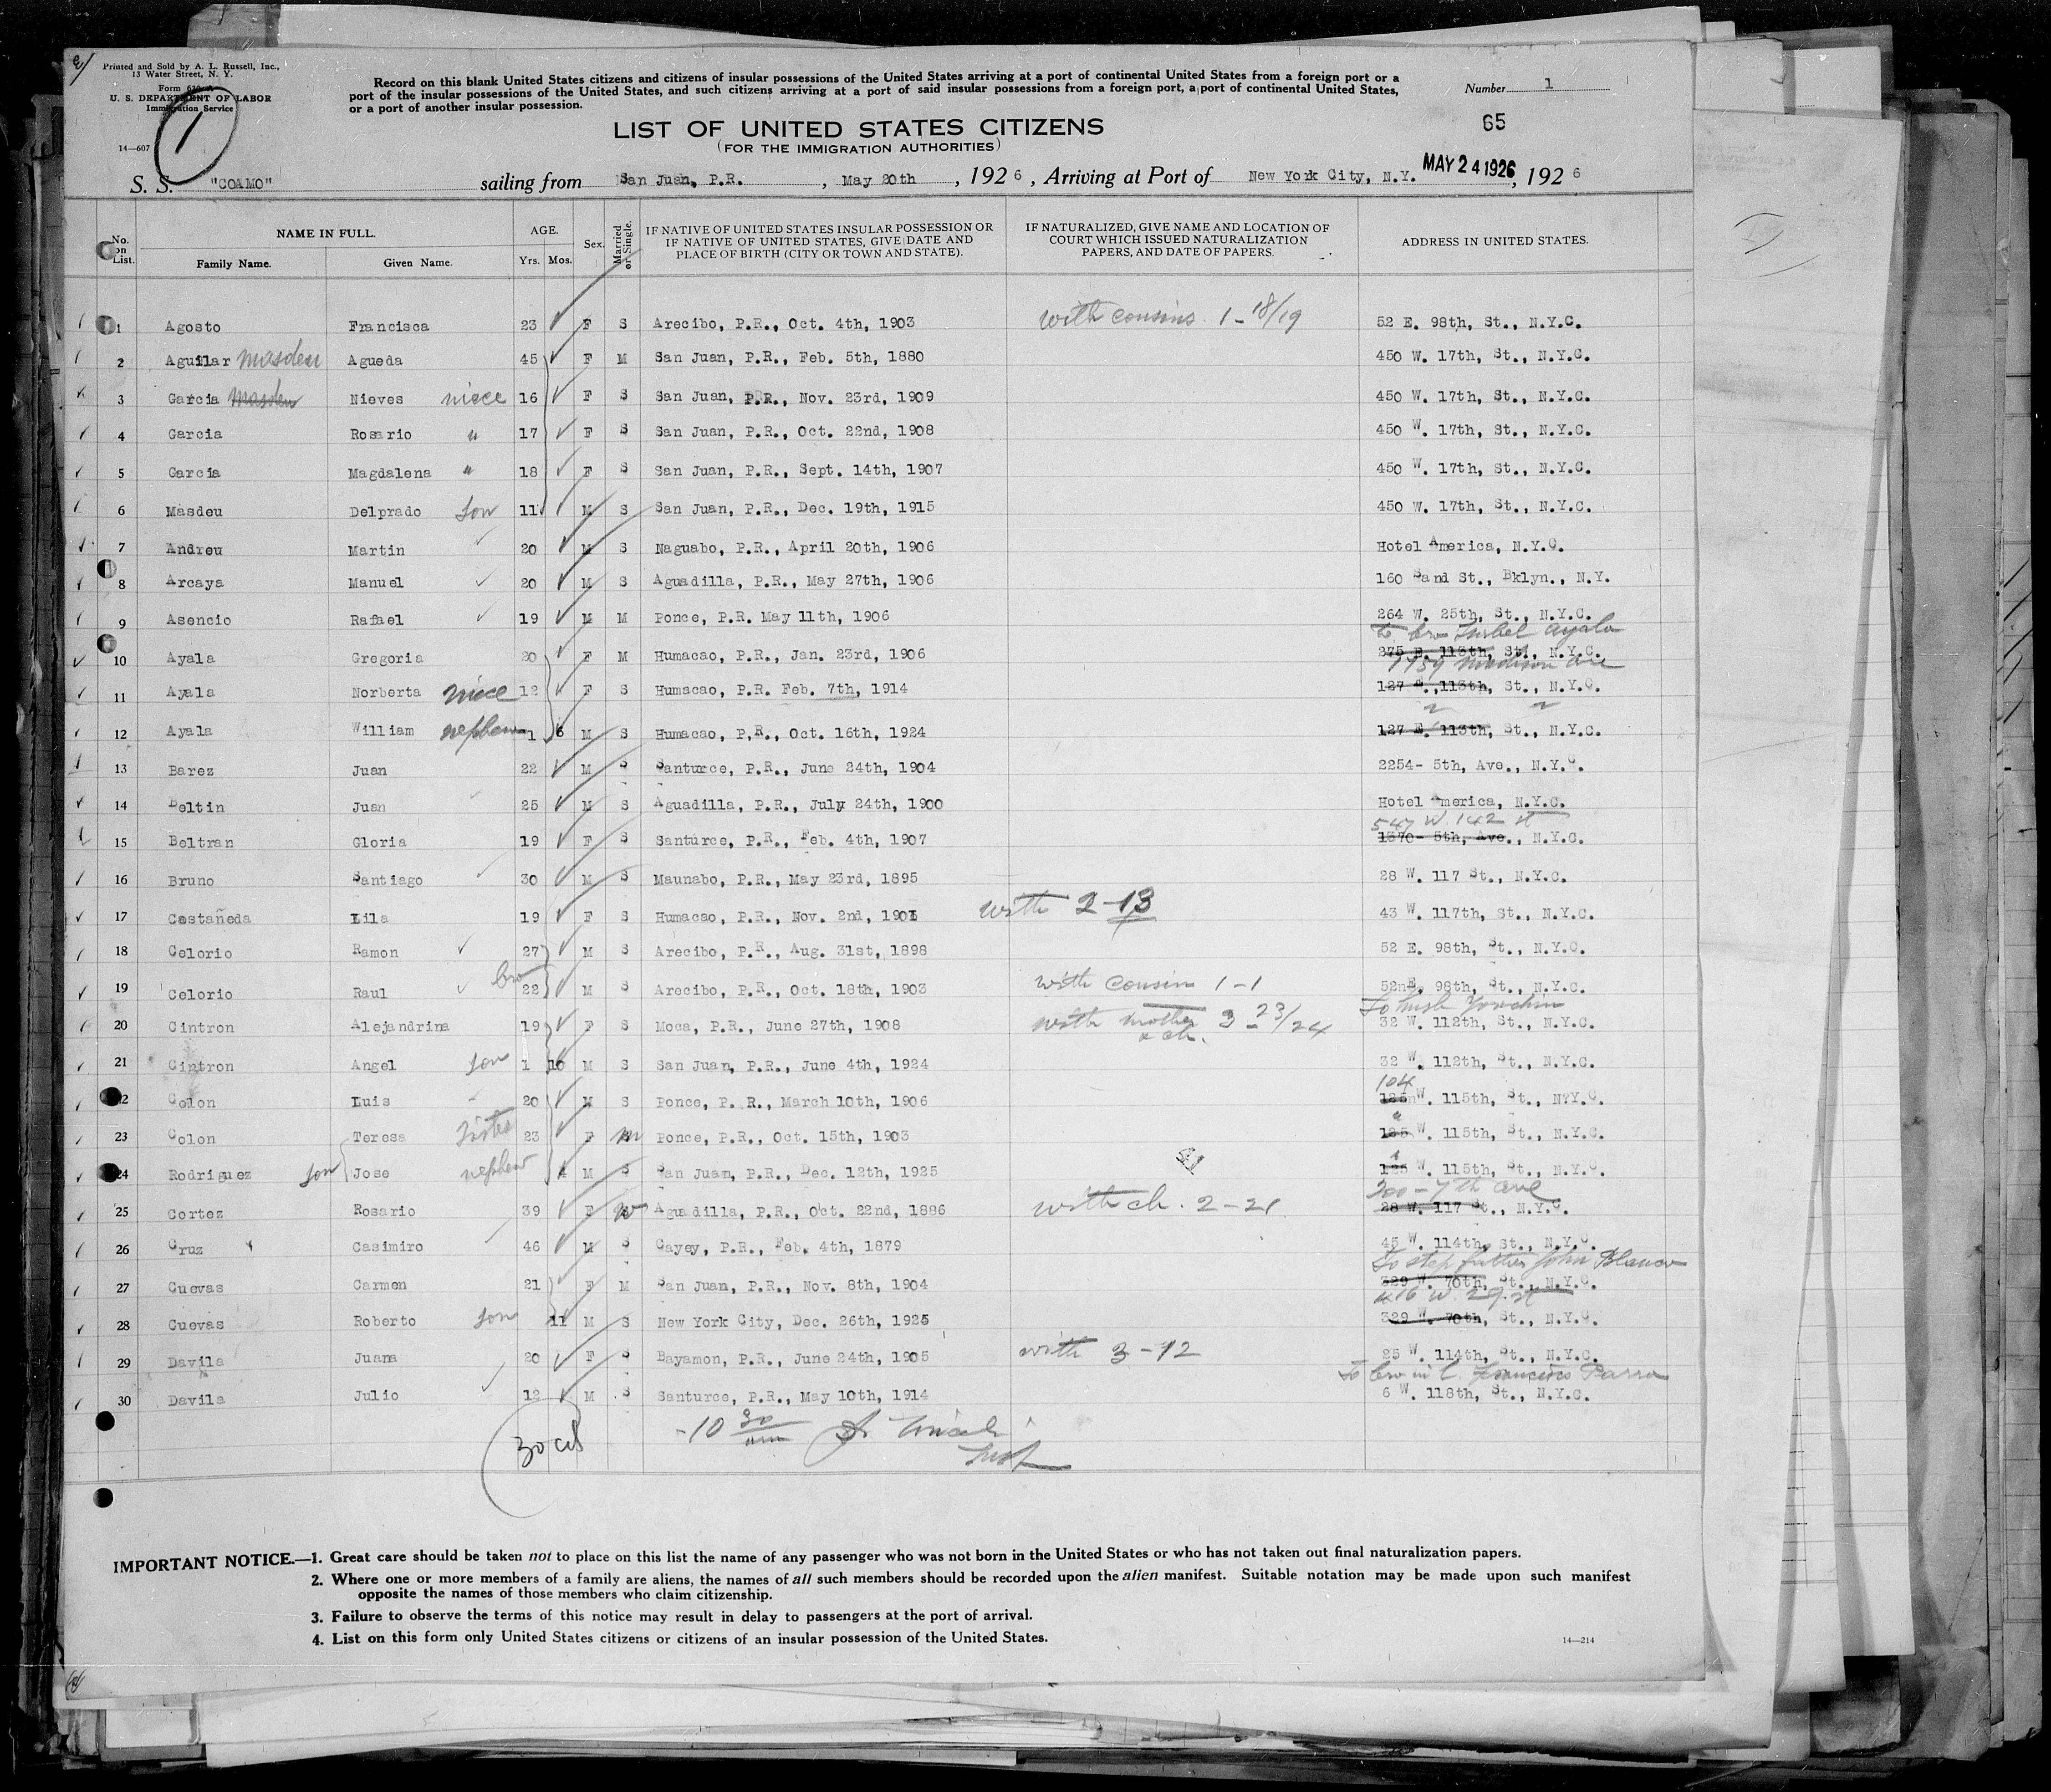 Printed and Sold by A. L. Russell, Inc.,
13 Water Street, N. Y.
Form 630-A
U. S. DEPARTMENT OF LABOR
Immigration Service
14—607
1
Record on this blank United States citizens and citizens of insular possessions of the United States arriving at a port of continental United States from a foreign port or a
port of the insular possessions of the United States, and such citizens arriving at a port of said insular possessions from a foreign port, a port of continental United States,
or a port of another insular possession.
Number 1
65
LIST OF UNITED STATES CITIZENS
(FOR THE IMMIGRATION AUTHORITIES)
S. S. "COAMO" sailing from San Juan, P.R. , May 20th , 1926 , Arriving at Port of New York City, N.Y. MAY 24 1926 , 1926
No. on List. NAME IN FULL. Family Name. Given Name. AGE. Yrs. Mos. Sex. Married or Single. IF NATIVE OF UNITED STATES INSULAR POSSESSION OR IF NATIVE OF UNITED STATES, GIVE DATE AND PLACE OF BIRTH (CITY OR TOWN AND STATE). IF NATURALIZED, GIVE NAME AND LOCATION OF COURT WHICH ISSUED NATURALIZATION PAPERS, AND DATE OF PAPERS. ADDRESS IN UNITED STATES.
1 Agosto Francisca 23 F S Arecibo, P.R., Oct. 4th, 1903 with cousins 1-18/19 52 E. 98th, St., N.Y.C.
2 Aguilar Masdeu Agueda 45 F M San Juan, P.R., Feb. 5th, 1880 450 W. 17th, St., N.Y.C.
3 Garcia Masdeu Nieves niece 16 F S San Juan, P.R., Nov. 23rd, 1909 450 W. 17th, St., N.Y.C.
4 Garcia Rosario " 17 F S San Juan, P.R., Oct. 22nd, 1908 450 W. 17th, St., N.Y.C.
5 Garcia Magdalena " 18 F S San Juan, P.R., Sept. 14th, 1907 450 W. 17th, St., N.Y.C.
6 Masdeu Delprado son 11 M S San Juan, P.R., Dec. 19th, 1915 450 W. 17th, St., N.Y.C.
7 Andreu Martin 20 M S Naguabo, P.R., April 20th, 1906 Hotel America, N.Y.C.
8 Arcaya Manuel 20 M S Aguadilla, P.R., May 27th, 1906 160 Sand St., Bklyn., N.Y.
9 Asencio Rafael 19 M M Ponce, P.R. May 11th, 1906 264 W. 25th, St., N.Y.C.
to bro Ayala
10 Ayala Gregoria 20 F M Humacao, P.R., Jan. 23rd, 1906 275 E. 113th, St., N.Y.C.
1759 Madison Ave
11 Ayala Norberta niece 12 F S Humacao, P.R. Feb. 7th, 1914 127 E., 113th, St., N.Y.C.
" "
12 Ayala William nephew 1 6 M S Humacao, P.R., Oct. 16th, 1924 127 E. 113th, St., N.Y.C.
13 Barez Juan 22 M S Santurce, P.R., June 24th, 1904 2254- 5th, Ave., N.Y.C.
14 Beltin Juan 25 M S Aguadilla, P.R., July 24th, 1900 Hotel America, N.Y.C.
547 W 142 St
15 Beltran Gloria 19 F S Santurce, P.R., Feb. 4th, 1907 1370- 5th, Ave., N.Y.C.
16 Bruno Santiago 30 M S Maunabo, P.R., May 23rd, 1895 28 W. 117 St., N.Y.C.
17 Castañeda Lila 19 F S Humacao, P.R., Nov. 2nd, 190 with 2-13 43 W. 117th, St., N.Y.C.
18 Celorio Ramon 27 M S Arecibo, P.R., Aug. 31st, 1898 52 E. 98th, St., N.Y.C.
19 Celorio Raul bro 22 M S Arecibo, P.R., Oct. 18th, 1903 with cousin 1-1 52 E. 98th, St., N.Y.C.
To husb Joachin
20 Cintron Alejandrina 19 F S Moca, P.R., June 27th, 1908 with mother & ch. 3-23/24 32 W. 112th, St., N.Y.C.
21 Cintron Angel son 1 10 M S San Juan, P.R., June 4th, 1924 32 W. 112th, St., N.Y.C.
104
22 Colon Luis 20 M S Ponce, P. R., March 10th, 1906 125 W. 115th, St., N.Y.C.
"
23 Colon Teresa sister 23 F M Ponce, P.R., Oct. 15th, 1903 125 W. 115th, St., N.Y.C.
24 Rodriguez son Jose nephew 4 M S San Juan, P.R., Dec. 12th, 1925 125 W. 115th, St., N.Y.C.
200-7th Ave
25 Cortez Rosario 39 F W Aguadilla, P.R., Oct. 22nd, 1886 with ch. 2-21 28 W. 117 St., N.Y.C.
26 Cruz Casimiro 46 M S Cayey, P.R., Feb. 4th, 1879 45 W. 114th, St., N.Y.C.
To step father John Blanco
27 Cuevas Carmen 21 F M San Juan, P.R., Nov. 8th, 1904 329 W. 70th, St., N.Y.C.
416 W. 29 St
28 Cuevas Roberto son 11 M S New York City, Dec. 26th, 1925 329 W. 70th, St., N.Y.C.
29 Davila Juana 20 F S Bayamon, P.R., June 24th, 1905 with 3-12 25 W. 114th, St., N.Y.C.
To bro in l. Francisco Parra
30 Davila Julio 12 M S Santurce, P.R., May 10th, 1914 6 W. 118th, St., N.Y.C.
30 cit
-10 30 am
Insp
IMPORTANT NOTICE.—1. Great care should be taken not to place on this list the name of any passenger who was not born in the United States or who has not taken out final naturalization papers.
2. Where one or more members of a family are aliens, the names of all such members should be recorded upon the alien manifest. Suitable notation may be made upon such manifest
opposite the names of those members who claim citizenship.
3. Failure to observe the terms of this notice may result in delay to passengers at the port of arrival.
4. List on this form only United States citizens or citizens of an insular possession of the United States.
14—214